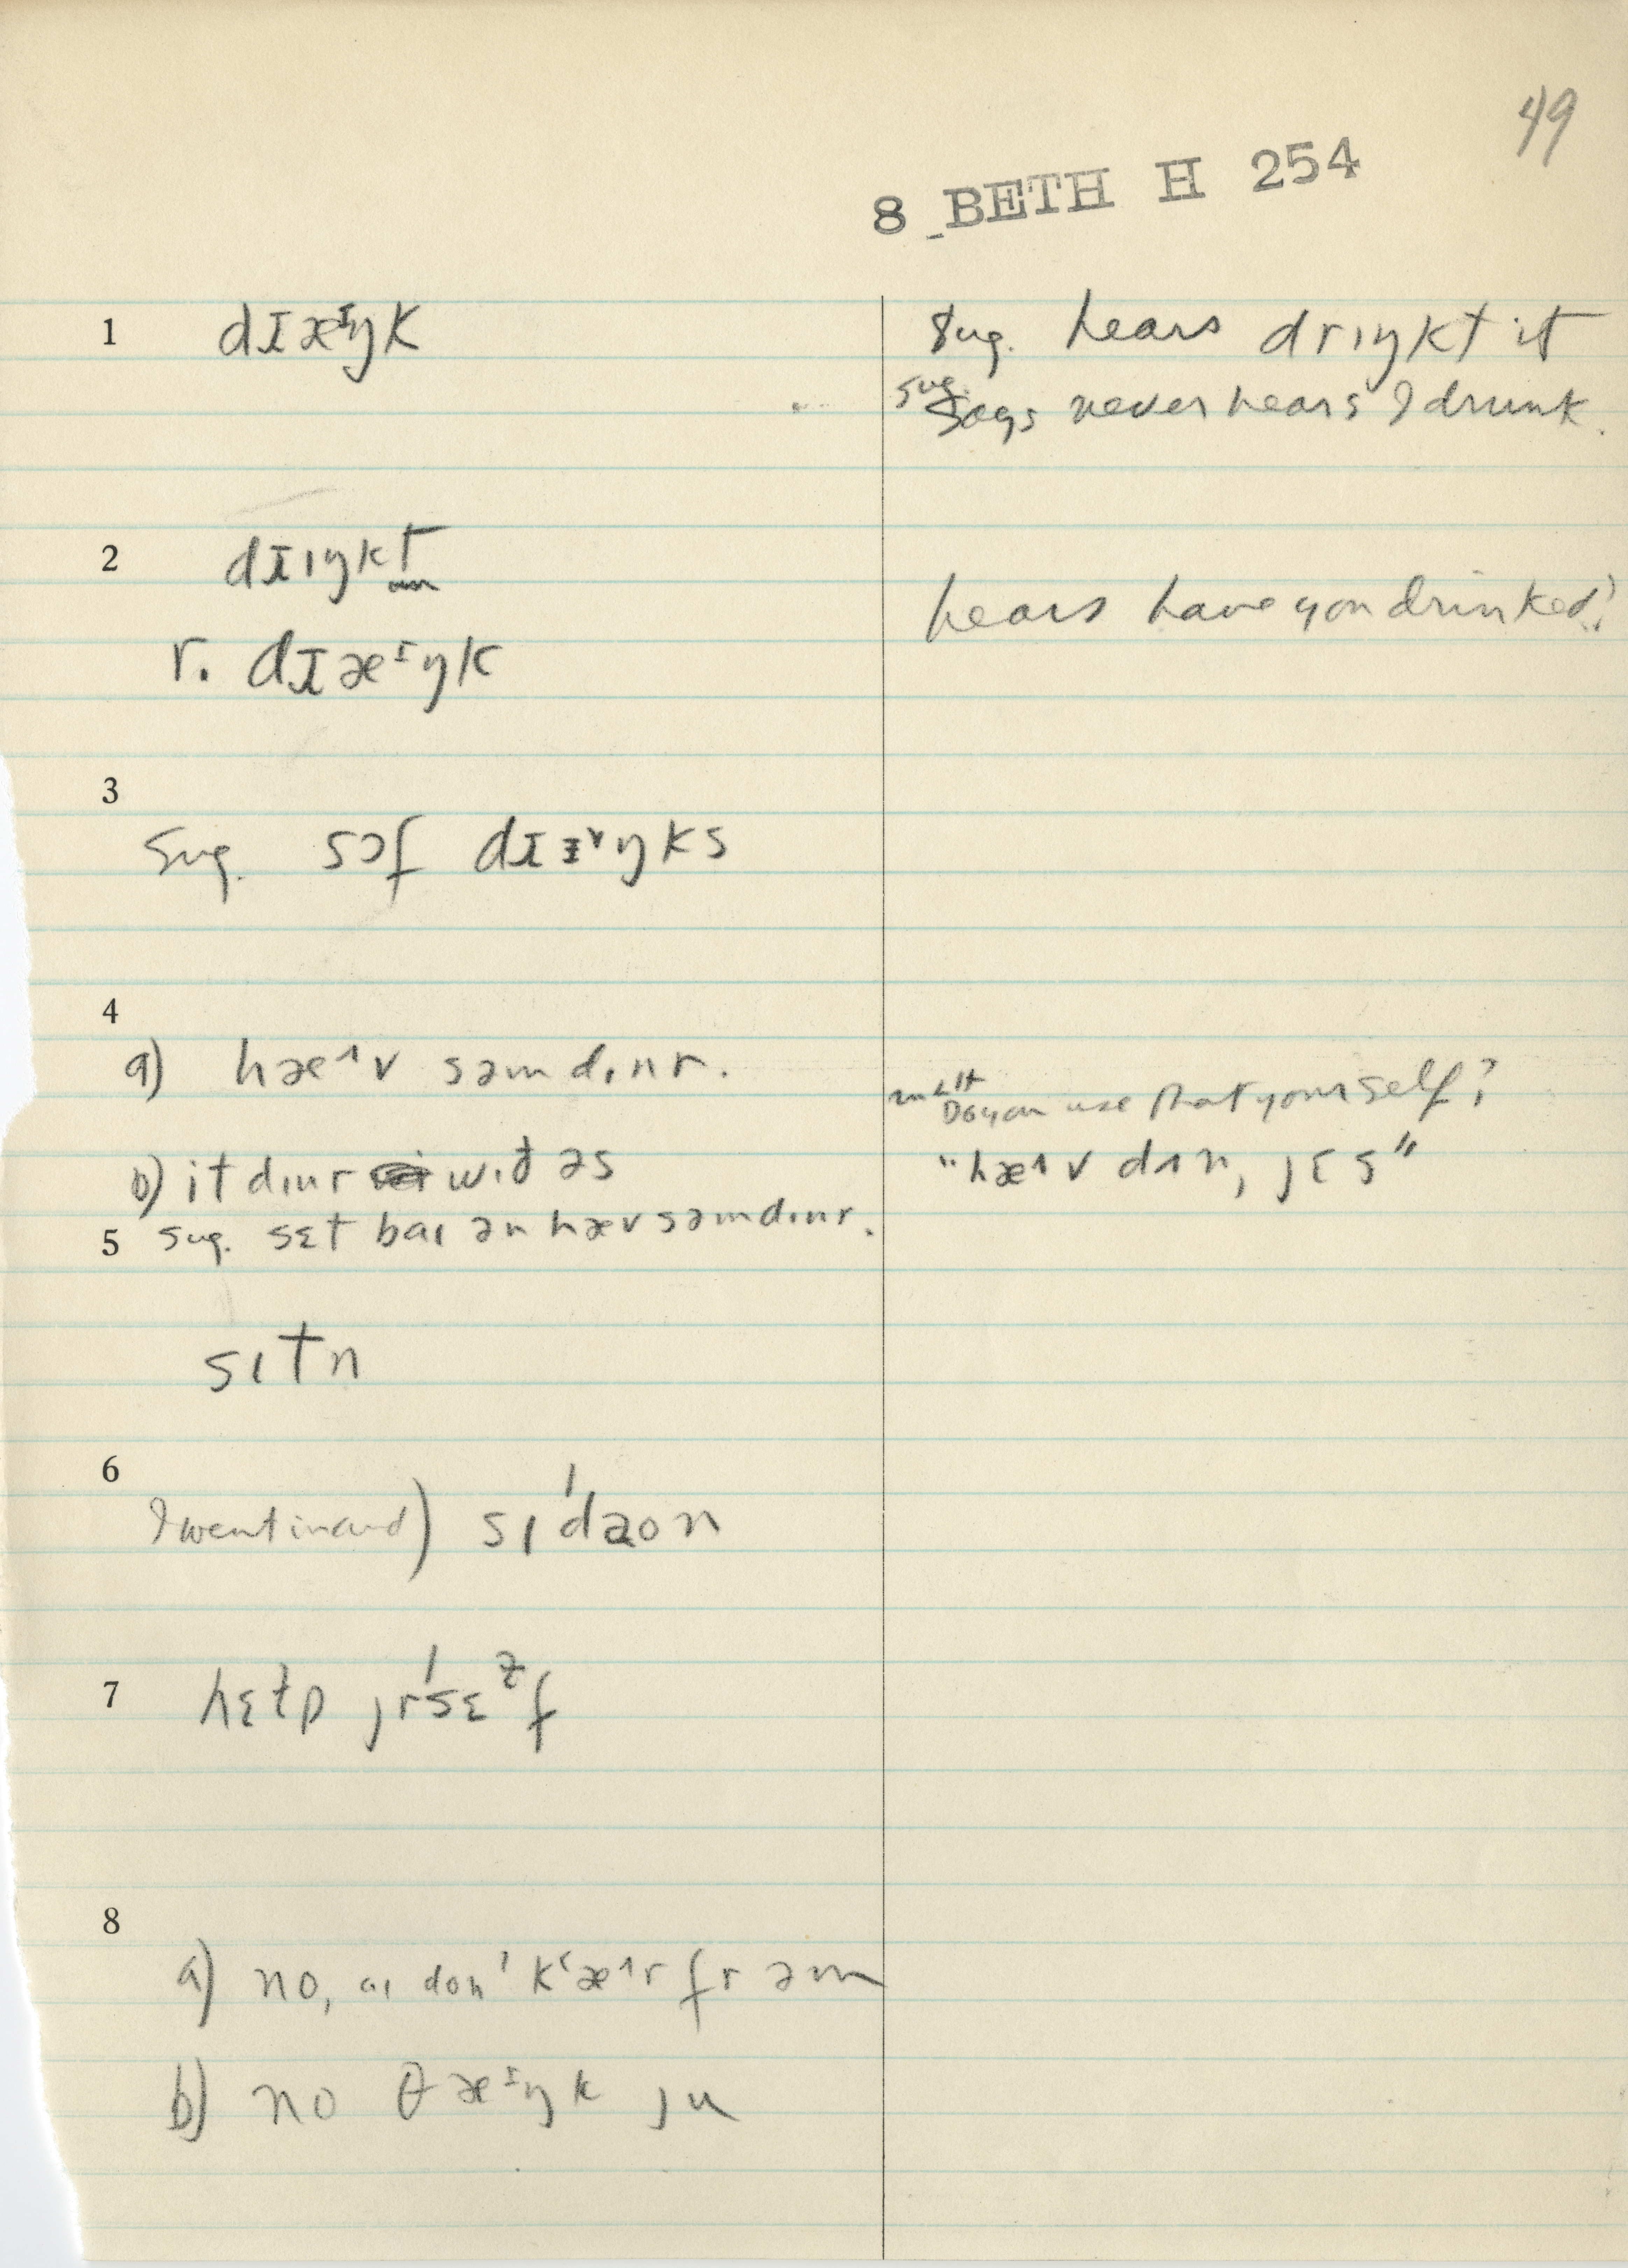 49
8 BETH H 254
1 dɪæᶦŋk
Sug. hears drɪŋkt it
sug. Says never hears I drunk.
2 dɪɪŋkt
hears have you drinked?
r. dɪæᶦŋk
3
Sug. sɔf dɪɪᵛŋks
4
a) hæ^v səm dɪnr.
Do you use that yourself?
b) it dɪnr wið əs
"hæ^v dɪn, jɛs"
5 sug. sɛt baɪ ən hæv səm dɪnr.
sɪtn
6
I went in and) sɪ'daon
7 hɛɫp jr'sɛᶻf
8
a) no, aɪ don' k'æ^r fr əm
b) no θæᶦŋk ju